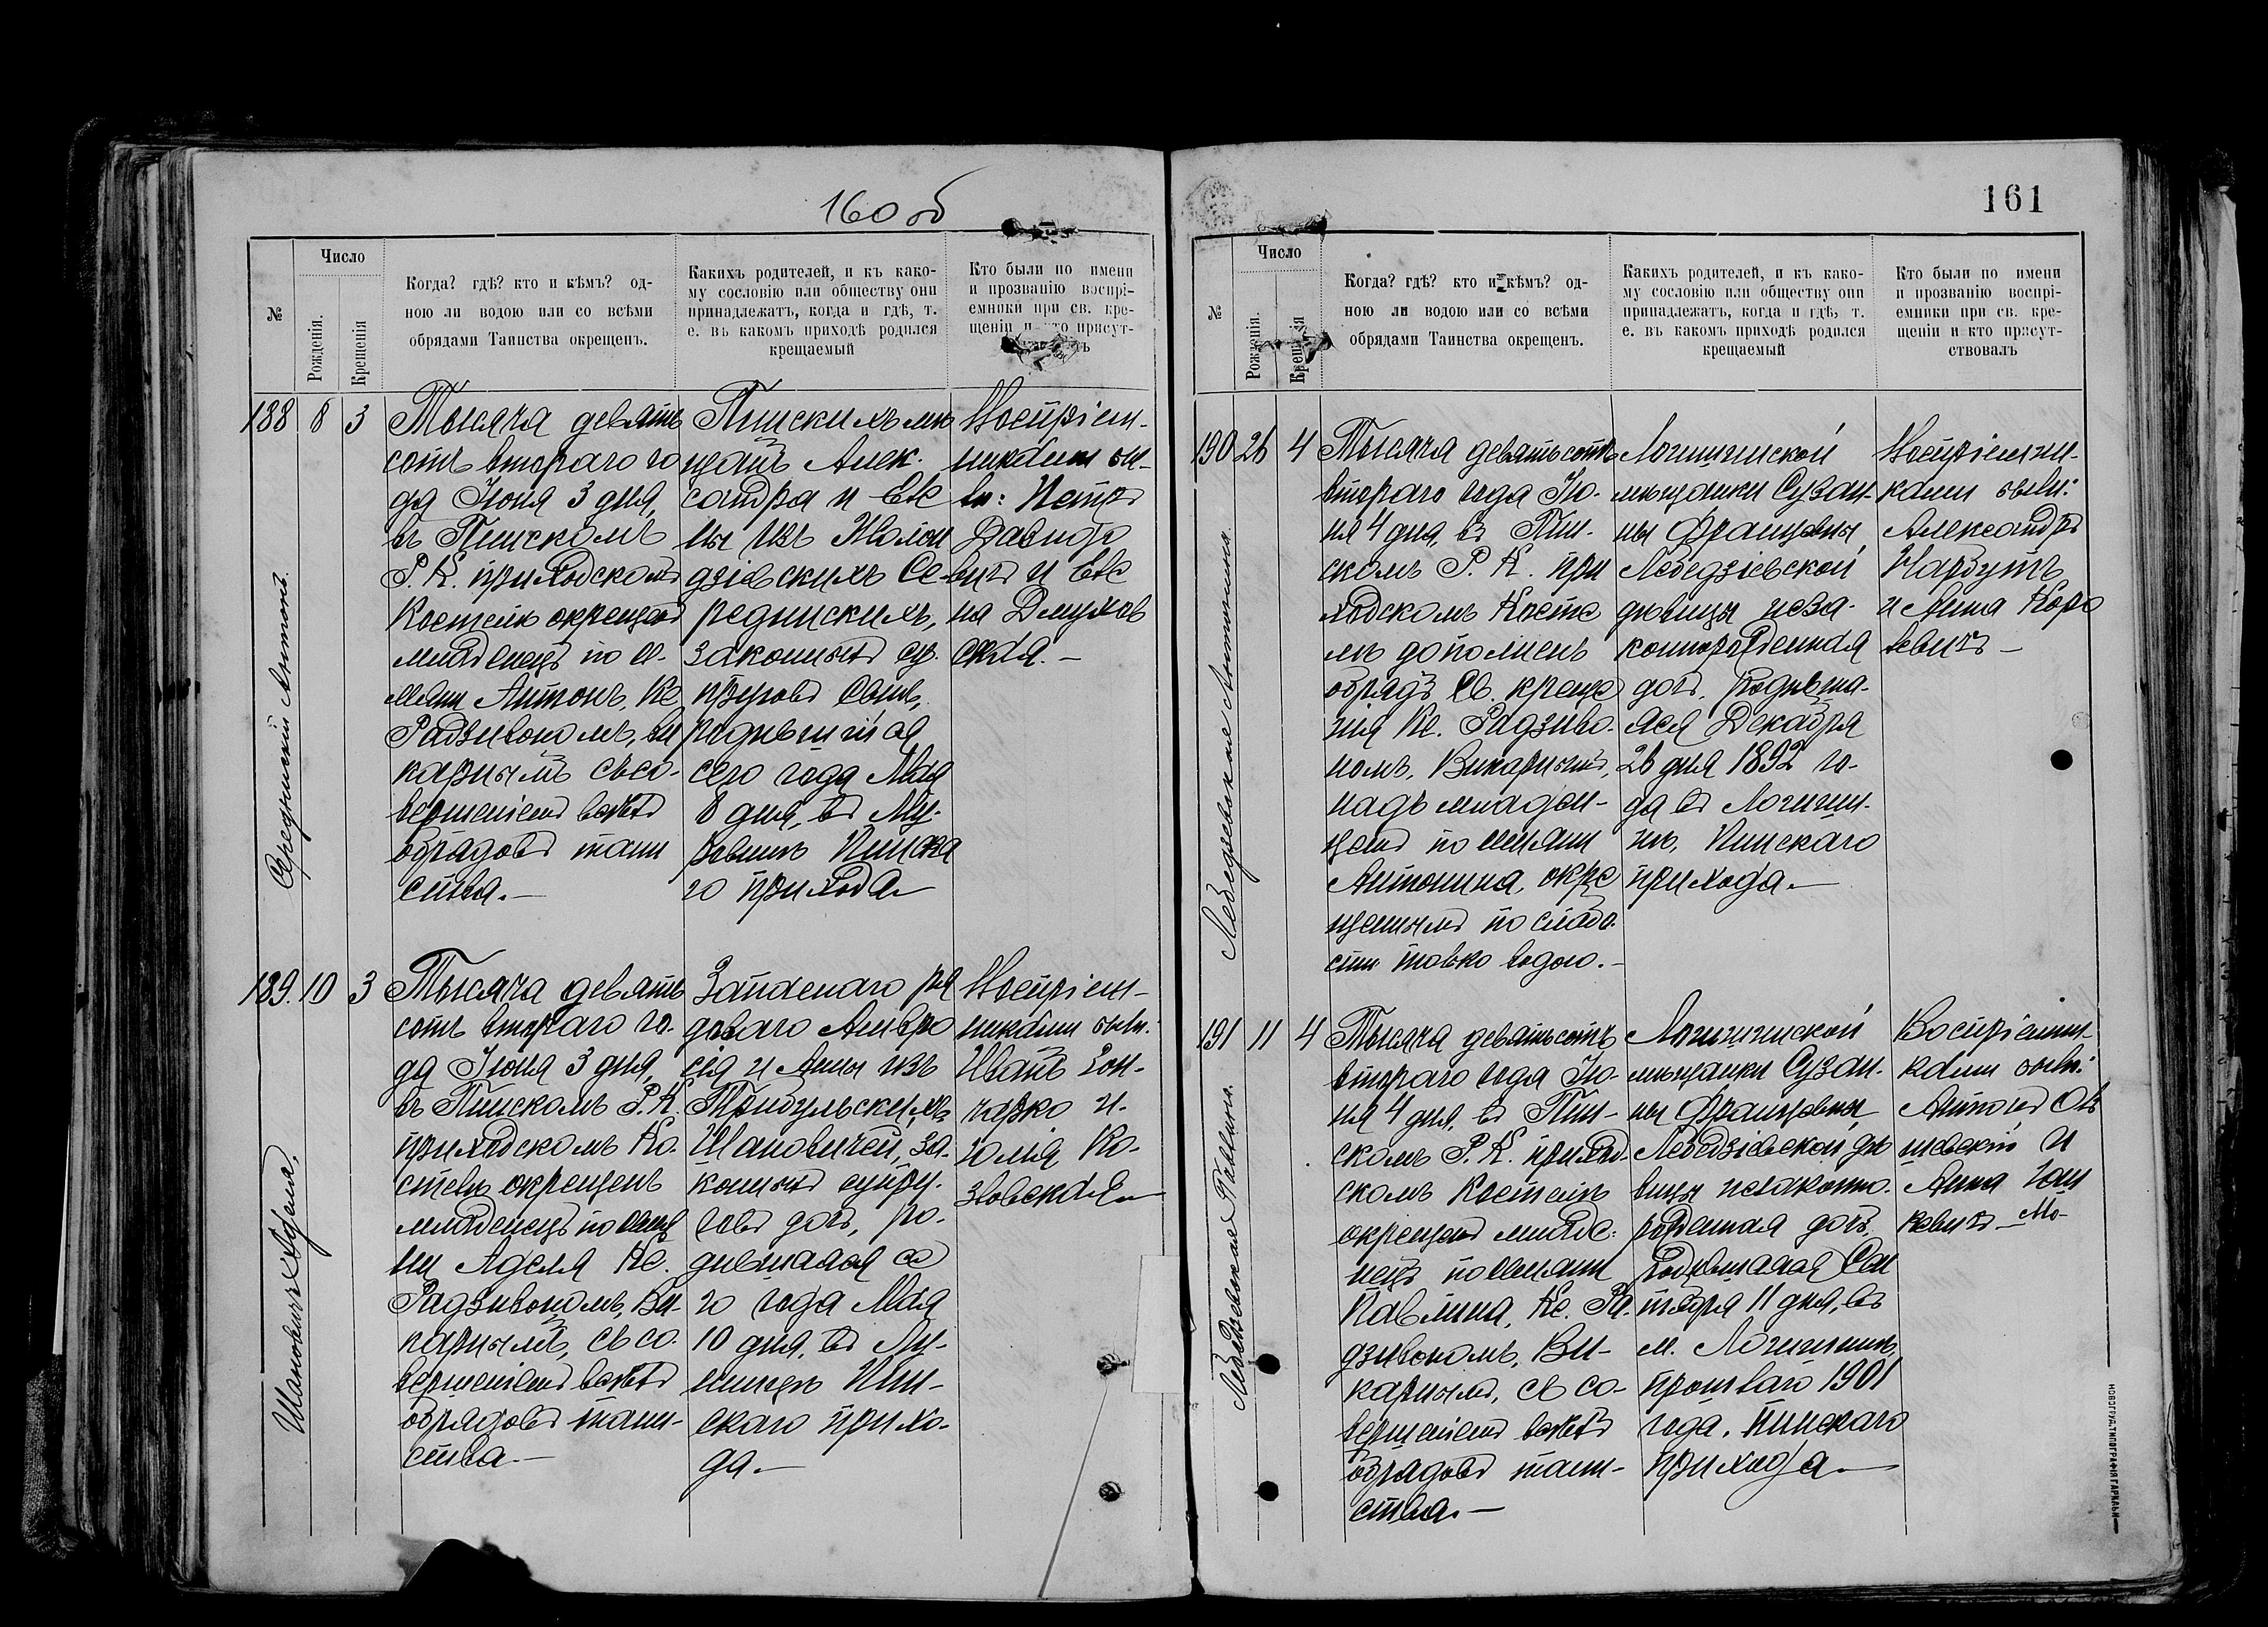 160 об
№
Число
Рожденія.
Крещенія
Когда? гдѣ? кто и кѣмъ? од-
ною ли водою или со всѣми
обрядами Таинства окрещенъ.
Какихъ родителей, и къ како-
му сословію или обществу они
принадлежатъ, когда и гдѣ, т.
е. въ какомъ приходѣ родился
крещаемый
Кто были по имени
и прозванію воспрі-
емники при св. кре-
щеніи и кто присут-
188 8 3
Середзискій Антонъ.
Тысяча девять
сотъ втораго го
да Іюня 3 дня,
въ Пинскомъ
Р. К. приходскомъ
Костелѣ окрещенъ
младенецъ по и-
мени Антонъ, Кс
Радзивономъ, Ви
карнымъ съ со-
вершеніемъ всѣхъ
обрядовъ таин
ства.-
Пинскихъ мѣ
щанъ Алек-
сандра и Еле
ны изъ
Се-
законныхъ су-
пруговъ сынъ,
родившійся
сего года Мая
8 дня, въ
Пинска
го прихода
Воспріем-
никами бы-
ли: Петръ
Давидо
вичъ и Еле
на
ская.-
189. 10 3
Шановичъ Адела.
Тысяча девять
сотъ втораго го-
да Іюня 3 дня,
въ Пинскомъ Р. К.
приходскомъ Ко-
стелѣ окрещенъ
младенецъ по име
ни Аделя Кс.
Радзивономъ, Ви-
карнымъ, съ со-
вершеніемъ всѣхъ
обрядовъ таин-
ства.-
Запаснаго ря
доваго Амвро
сія и Анны изъ
Шановичей, за-
конныхъ супру-
говъ дочь, ро-
дившаяся се
го года Мая
10 дня, въ
Пин-
скаго прихо-
да.-
Воспріем-
никами были:
Иванъ Гон-
чарко и
Юлія Ко-
зловская
161
№
Число
Рожденія.
Крещенія
Когда? гдѣ? кто и кѣмъ? од-
ною ли водою или со всѣми
обрядами Таинства окрещенъ.
Какихъ родителей, и къ како-
му сословію или обществу они
принадлежатъ, когда и гдѣ, т.
е. въ какомъ приходѣ родился
крещаемый
Кто были по имени
и прозванію воспрі-
емники при св. кре-
щеніи и кто присут-
ствовалъ
190 26 4
Антонина.
Тысяча девятьсотъ
втораго года Ію-
ня 4 дня, въ Пин-
скомъ Р. К. при
ходскомъ Косте
лѣ дополненъ
обрядъ Св. креще
нія Кс. Радзиво-
номъ, Викарнымъ,
надъ младен-
цемъ по имени
Антонина, окре
щеннымъ по слабо-
сти толко водою.-
Логишинской
мѣщанки Сузан-
ны Францовны
Лебедзіевской
дѣвицы неза-
коннорожденная
дочь, родивша-
яся Декабря
26 дня 1892 го-
да въ Логиши-
нѣ, Пинскаго
прихода.-
Воспріемни-
ками были:
Александръ
Нарбутъ
и Анна Коро
левичъ -
191 11 4
Павлина.
Тысяча девятьсотъ
втораго года Ію-
ня 4 дня, въ Пин-
скомъ Р. К. приход-
скомъ Костелѣ
окрещенъ младе-
нецъ по имени
Павлина, Кс. Ра-
дзивономъ, Ви-
карнымъ, съ со-
вершеніемъ всѣхъ
обрядовъ таин-
ства.-
Логишинской
мѣщанки Сузан-
ны Францовны
Лебедзіевской дѣ
вицы незаконно-
рожденная дочь,
родившаяся Сен
тября 11 дня, въ
м. Логишинѣ
прошлаго 1901
года, Пинскаго
прихода.-
Воспріемни-
ками были:
Антонъ
и
Анна
НОВОГРУД. ТИПОГРАФІЯ